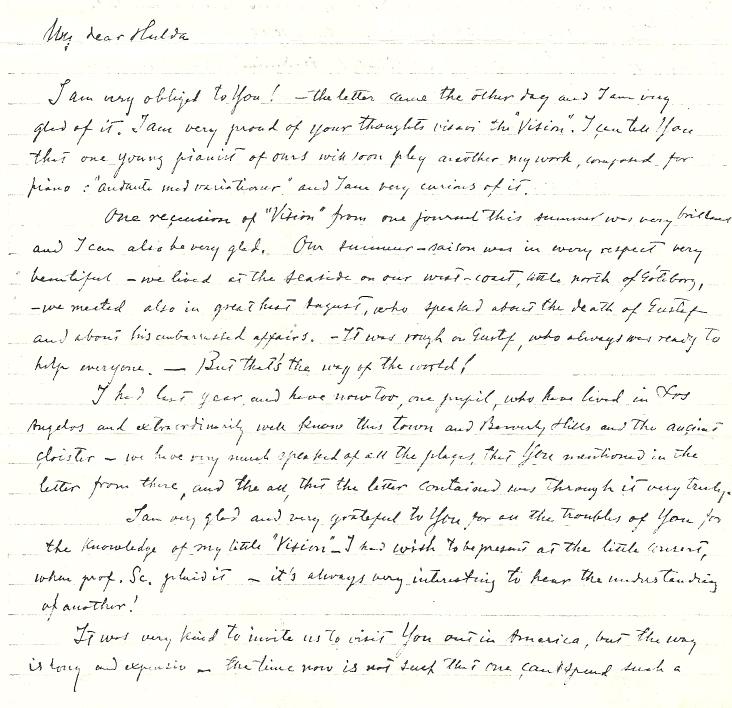 My dear Hulda
I am very obliged to You! – the letter came the other day and I am very
glad of it. I am very proud of your thoughts visavi the "Vision". I can tell You
that one young pianist of ours will soon play another my work, composed for
piano: "andante med variationer" and I am very curious of it.
One recension of "Vision" from one journal this summer was very brilliant
and I can also be very glad. Our summer-saison was in every respect very
beautiful – we lived at the seaside on our west-coast, little north of Göteborg,
– we meeted also in great hast August, who speaked about the death of Gustaf
and about his embarrassed affairs. – It was rough on Gustaf, who always was ready to
help everyone. – But that's the way of the world!
I had last year, and have now too, one pupil, who have lived in Los
Angelos and extraordinarily well know this town and Beverly Hills and the ancient
cloister – we have very much speaked of all the places, that You mentioned in the
letter from there, and the all, that the letter contained was through it very truly.
I am very glad and very grateful to You for all the troubles of You for
the knowledge of my little "Vision" – I had wish to be present at the little concert,
when prof. Sc. plaid it – it's always very interesting to hear the understanding
of another!
It was very kind to invite us to visit You out in America, but the way
is long and expensiv – the time now is not such that one can spend such a